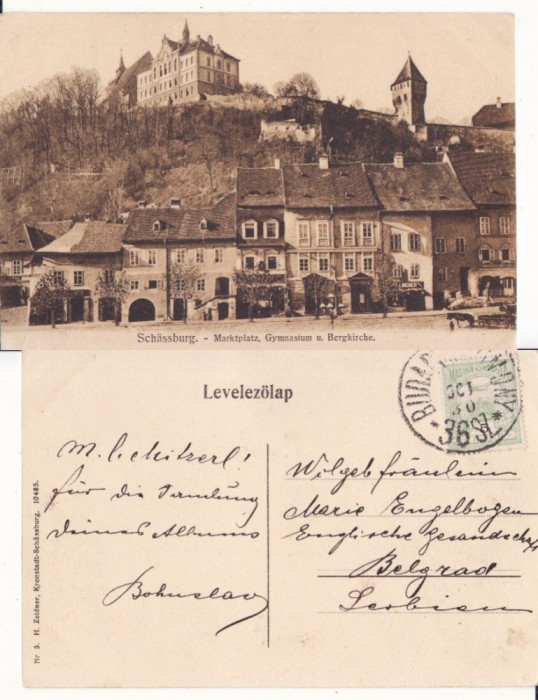 Schässburg. - Marktplatz, Gymnasium u. Bergkirche.
Levelezőlap
OCT
30
*36SZ*
M.
für die Samlung
deines Albums
Bohuslav
Wolgebfräulein
Marie Engelbogen
Englische Gesandschaft
Belgrad
Serbien
Nr 3. H. Zeidner, Kronstadt-Schässburg. 10485.